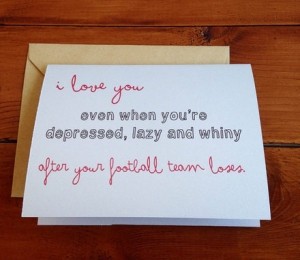 i love you
even when you're
depressed, lazy and whiny
after your football team loses.